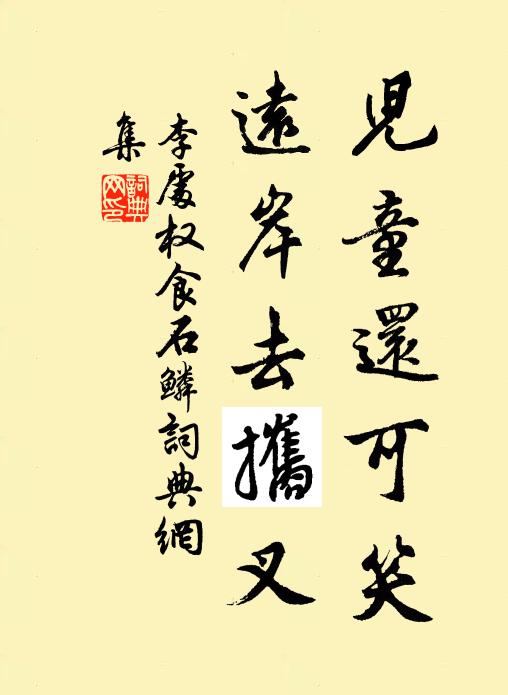 兒童還可笑
遠岸去攜叉
李處权食石鱗詞典網
集
詞典網印